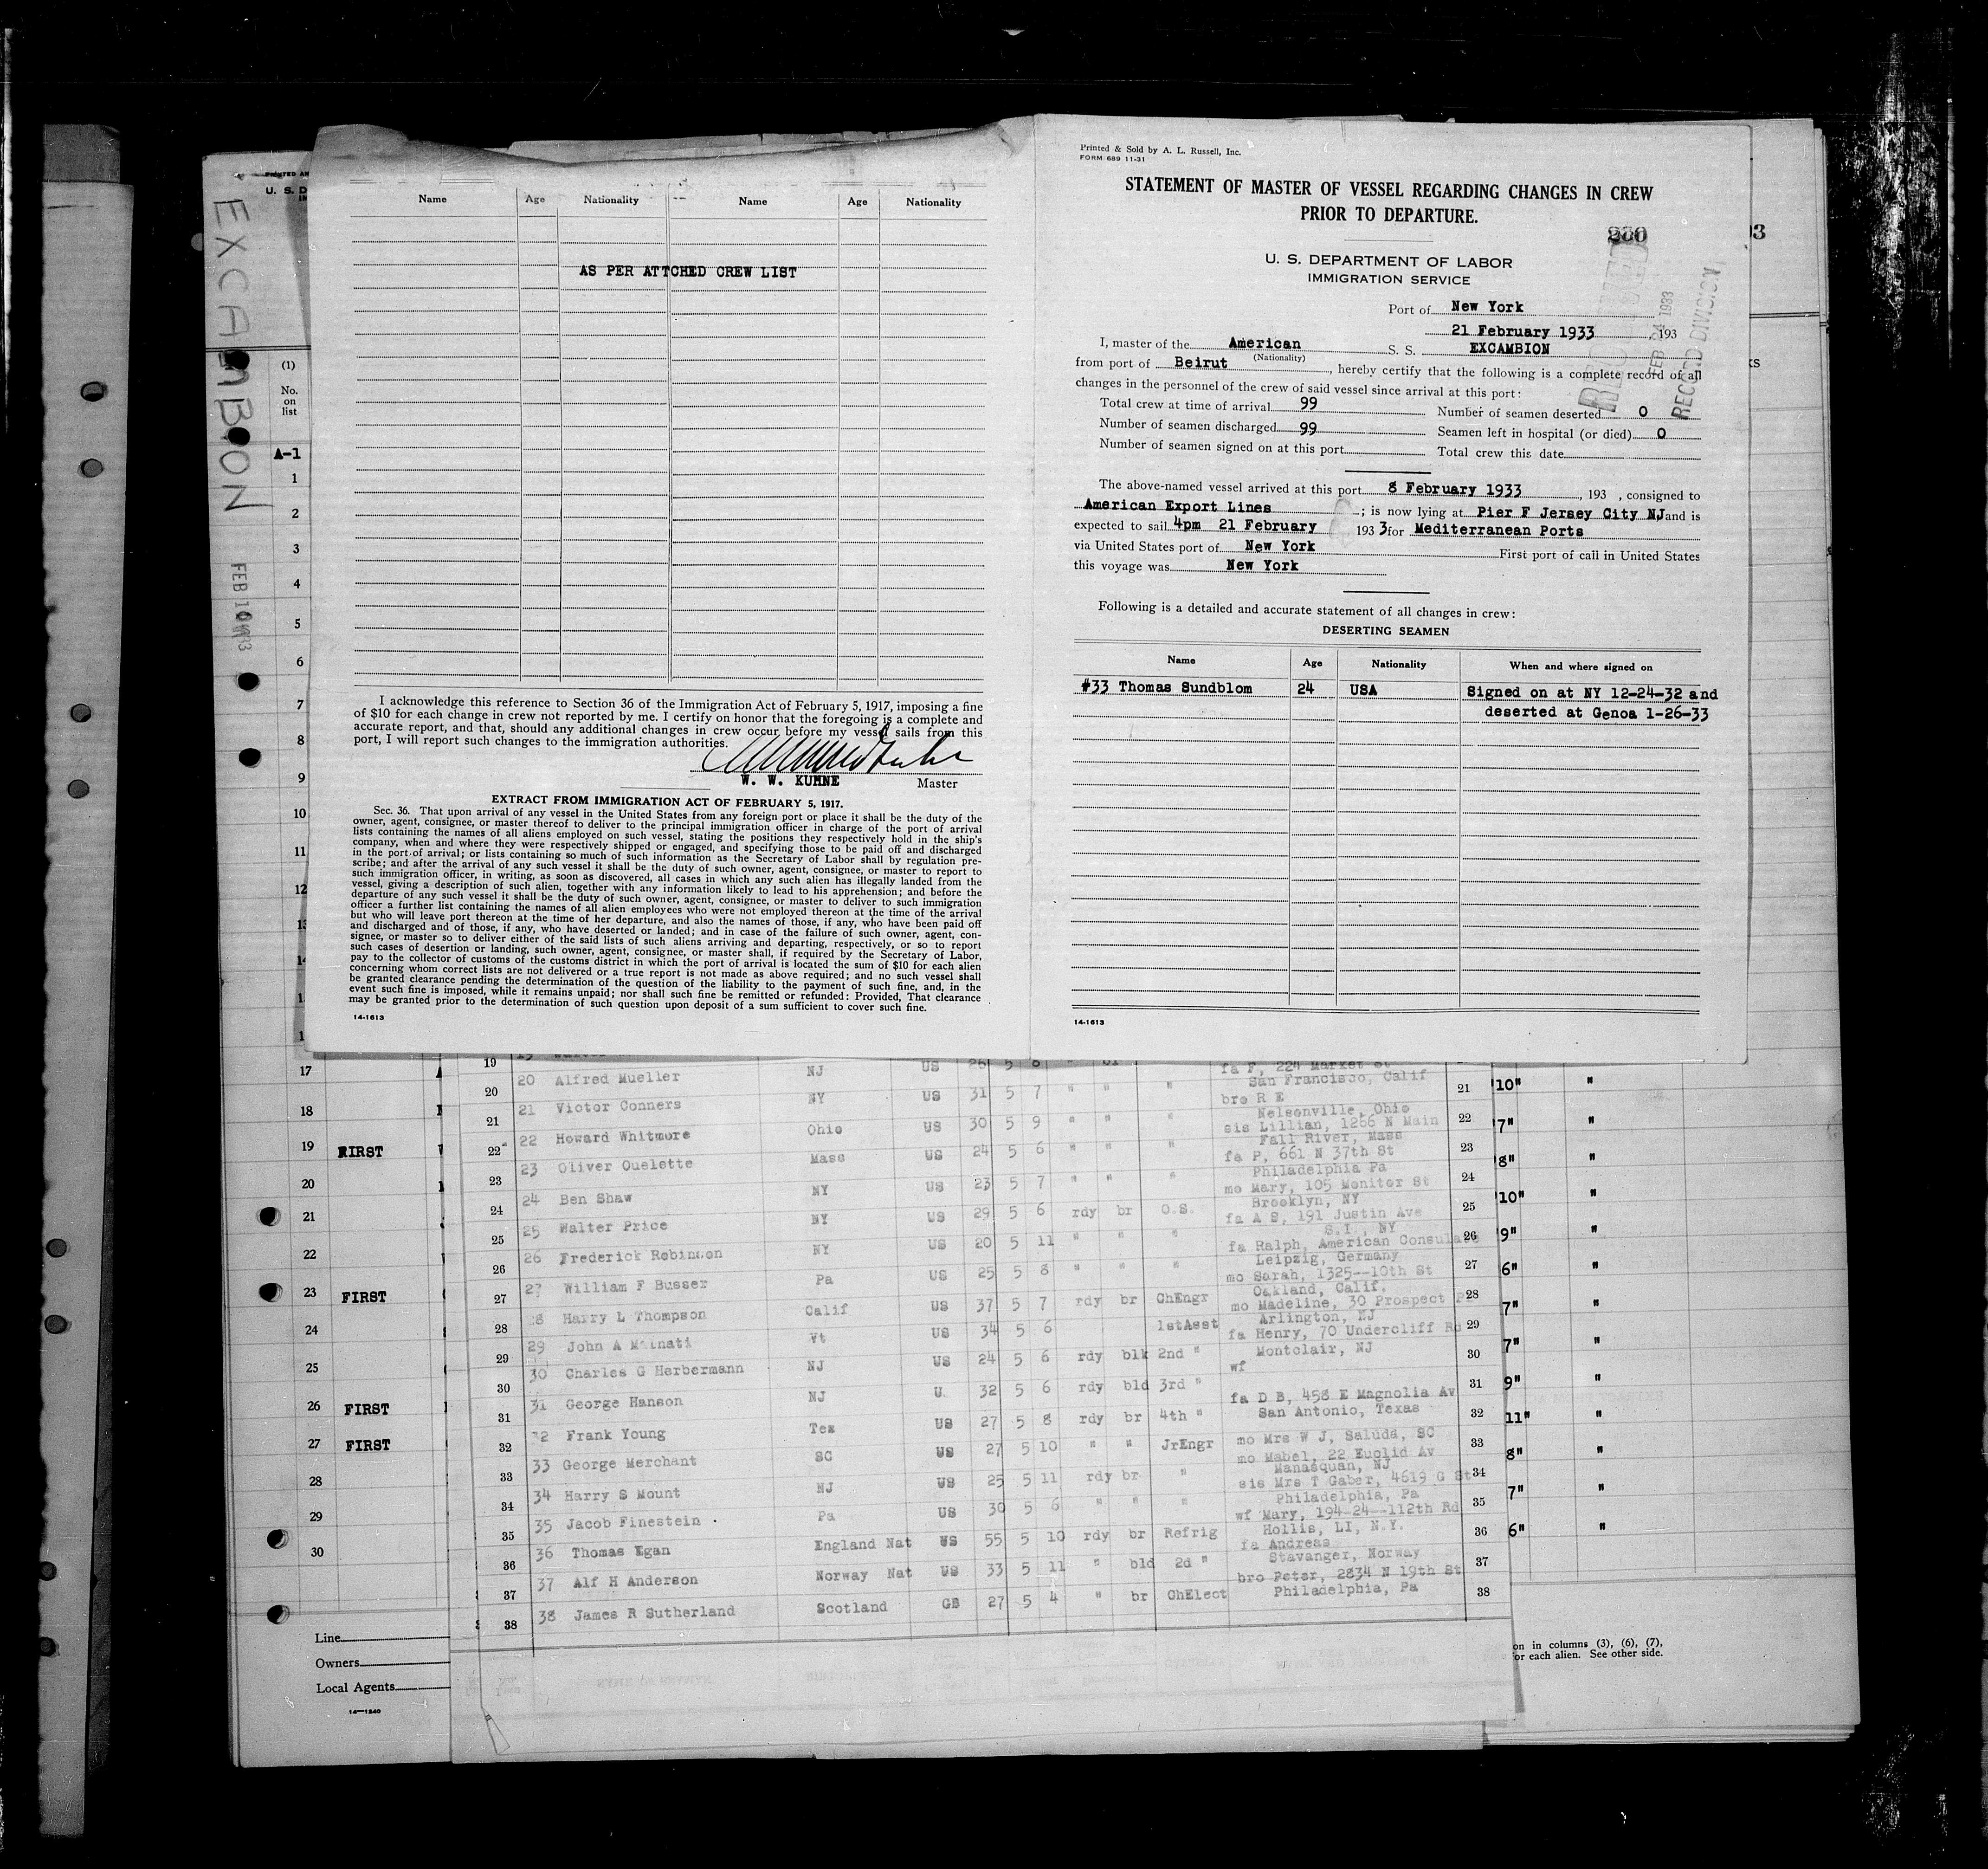 EXCAMBION
FEB 10 1933
U. S. D
(1)
No.
on
list
A-1
1
2
3
4
5
6
7
8
9
10
11
12
13
14
17
18
19 FIRST
20
21
22
23 FIRST
24
25
26 FIRST
27 FIRST
28
29
30
Line
Owners
Local Agents
14—1240
Name Age Nationality Name Age Nationality
AS PER ATTCHED CREW LIST
I acknowledge this reference to Section 36 of the Immigration Act of February 5, 1917, imposing a fine
of $10 for each change in crew not reported by me. I certify on honor that the foregoing is a complete and
accurate report, and that, should any additional changes in crew occur before my vessel sails from this
port, I will report such changes to the immigration authorities.
W. W. KUHNE Master
EXTRACT FROM IMMIGRATION ACT OF FEBRUARY 5, 1917.
Sec. 36. That upon arrival of any vessel in the United States from any foreign port or place it shall be the duty of the
owner, agent, consignee, or master thereof to deliver to the principal immigration officer in charge of the port of arrival
lists containing the names of all aliens employed on such vessel, stating the positions they respectively hold in the ship's
company, when and where they were respectively shipped or engaged, and specifying those to be paid off and discharged
in the port of arrival; or lists containing so much of such information as the Secretary of Labor shall by regulation pre-
scribe; and after the arrival of any such vessel it shall be the duty of such owner, agent, consignee, or master to report to
such immigration officer, in writing, as soon as discovered, all cases in which any such alien has illegally landed from the
vessel, giving a description of such alien, together with any information likely to lead to his apprehension; and before the
departure of any such vessel it shall be the duty of such owner, agent, consignee, or master to deliver to such immigration
officer a further list containing the names of all alien employees who were not employed thereon at the time of the arrival
but who will leave port thereon at the time of her departure, and also the names of those, if any, who have been paid off
and discharged and of those, if any, who have deserted or landed; and in case of the failure of such owner, agent, con-
signee, or master so to deliver either of the said lists of such aliens arriving and departing, respectively, or so to report
such cases of desertion or landing, such owner, agent, consignee, or master shall, if required by the Secretary of Labor,
pay to the collector of customs of the customs district in which the port of arrival is located the sum of $10 for each alien
concerning whom correct lists are not delivered or a true report is not made as above required; and no such vessel shall
be granted clearance pending the determination of the question of the liability to the payment of such fine, and, in the
event such fine is imposed, while it remains unpaid; nor shall such fine be remitted or refunded: Provided, That clearance
may be granted prior to the determination of such question upon deposit of a sum sufficient to cover such fine.
14-1613
Printed & Sold by A. L. Russell, Inc.
FORM 689 11-31
STATEMENT OF MASTER OF VESSEL REGARDING CHANGES IN CREW
PRIOR TO DEPARTURE.
U. S. DEPARTMENT OF LABOR
IMMIGRATION SERVICE
RECEIVED
FEB 24 1933
RECORD DIVISION
Port of New York
21 February 1933, 193
I, master of the American S. S. EXCAMBION
(Nationality)
from port of Beirut, hereby certify that the following is a complete record of all
changes in the personnel of the crew of said vessel since arrival at this port:
Total crew at time of arrival 99 Number of seamen deserted 0
Number of seamen discharged 99 Seamen left in hospital (or died) 0
Number of seamen signed on at this port Total crew this date
The above-named vessel arrived at this port 8 February 1933, 193 , consigned to
American Export Lines; is now lying at Pier F Jersey City NJ and is
expected to sail 4pm 21 February 193 3 for Mediterranean Ports
via United States port of New York First port of call in United States
this voyage was New York
Following is a detailed and accurate statement of all changes in crew:
DESERTING SEAMEN
Name Age Nationality When and where signed on
#33 Thomas Sundblom 24 USA Signed on at NY 12-24-32 and
deserted at Genoa 1-26-33
14-1613
19 US 26 5 8 fa F, 224 Market St
20 20 Alfred Mueller NJ San Francisco, Calif 21 10" "
21 21 Victor Conners NY US 31 5 7 " " " bro R E
Nelsonville, Ohio
22 22 Howard Whitmore Ohio US 30 5 9 " " " sis Lillian, 1266 N Main 22 7" "
Fall River, Mass
23 23 Oliver Ouelette Mass US 24 5 6 " " " fa P, 661 N 37th St 23 8" "
Philadelphia Pa
24 24 Ben Shaw NY US 23 5 7 " " " mo Mary, 105 Monitor St 24
Brooklyn, NY
25 25 Walter Price NY US 29 5 6 rdy br O.S. fa A S, 191 Justin Ave 25 10" "
S.I., NY
26 26 Frederick Robinson NY US 20 5 11 " " " fa Ralph, American Consulate 26 9" "
Leipzig, Germany
27 27 William F Busser Pa US 25 5 8 " " " mo Sarah, 1325--10th St 27 6" "
Oakland, Calif.
28 28 Harry L Thompson Calif US 37 5 7 rdy br ChEngr mo Madeline, 30 Prospect 28 7" "
Arlington, NJ
29 29 John A Vt US 34 5 6 1stAsst fa Henry, 70 Undercliff Rd 29
Montclair, NJ
30 30 Charles G Herbermann NJ US 24 5 6 rdy blk 2nd " wf 30 7" "
31 31 George Hanson NJ U. 32 5 6 rdy bld 3rd " fa D B, 458 E Magnolia Av 31 9" "
San Antonio, Texas
32 32 Frank Young Tex US 27 5 8 rdy br 4th " 32 11" "
33 33 George Merchant SC US 27 5 10 " " JrEngr mo Mrs W J, Saluda, SC 33 8" "
mo Mabel, 22 Euclid Av
Manasquan, NJ
34 34 Harry S Mount NJ US 25 5 11 rdy br " sis Mrs T Gaber, 4619 G St 34 7" "
Philadelphia, Pa
35 35 Jacob Finestein Pa US 30 5 6 " " " wf Mary, 194-24--112th Rd 35
Hollis, LI, N.Y.
36 36 Thomas Egan England Nat US 55 5 10 rdy br Refrig fa Andreas 36 6" "
Stavanger, Norway
37 37 Alf H Anderson Norway Nat US 33 5 11 " bld 2d " bro Peter, 2834 N 19th St 37
Philadelphia, Pa
38 38 James R Sutherland Scotland GB 27 5 4 " br ChElect 38
on in columns (3), (6), (7),
for each alien. See other side.